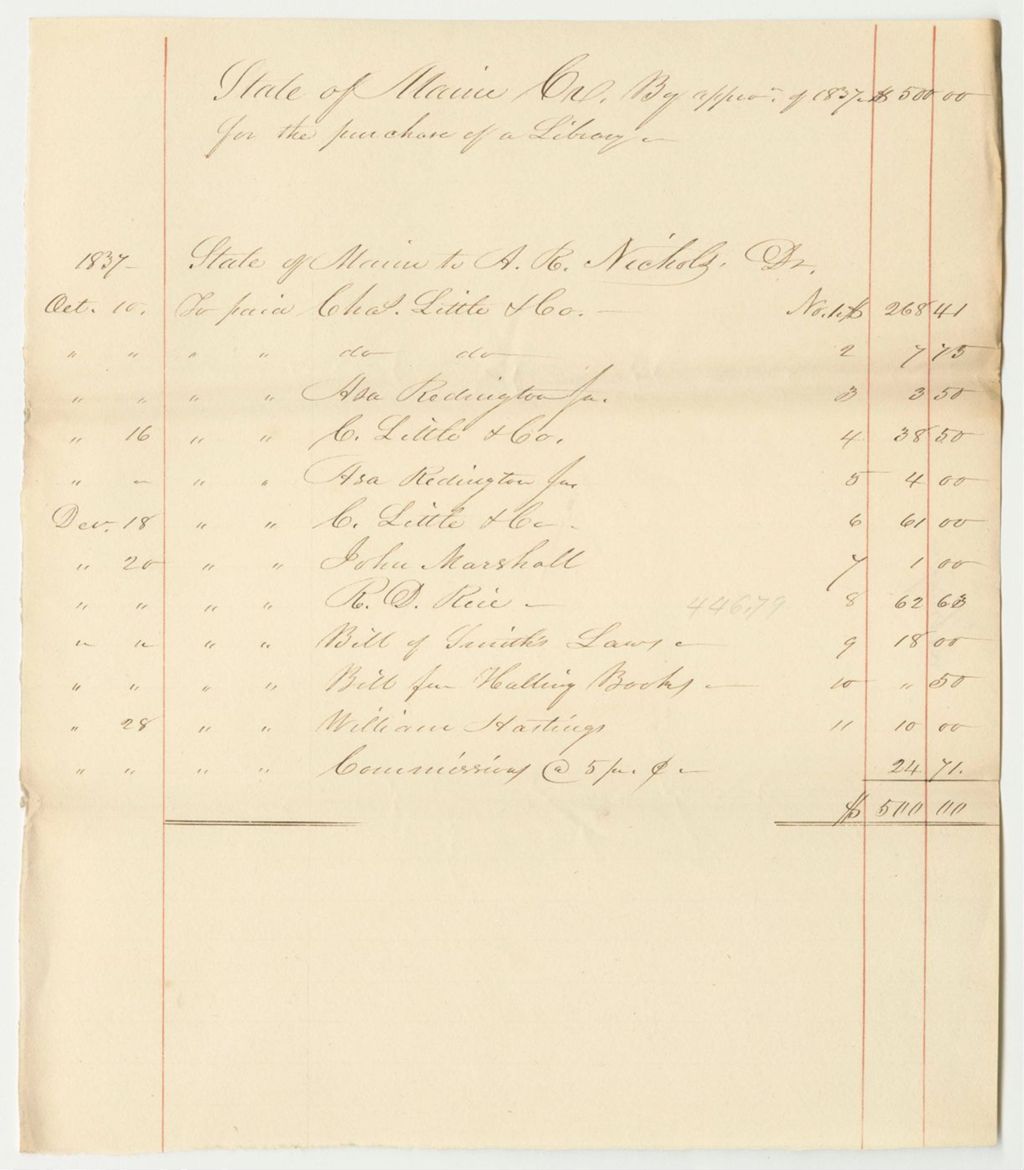 State of Maine Cr. By appro. of 1837. $ 500 00
for the purchase of a Library
1837 State of Maine to A. R. Nichols, Dr.
Oct. 10. To paid Chas. Little & Co. No. 1. $ 268 41
" " " " do do 2 7 75
" " " " Asa Redington Jr. 3 3 50
" 16 " " C. Little & Co. 4 38 50
" " " " Asa Redington Jr. 5 4 00
Dec. 18 " " C. Little & Co 6 61 00
" 20 " " John Marshall 7 1 00
" " " " R. D. Rice 446,79 8 62 63
" " " " Bill of Smith's Laws 9 18 00
" " " " Bill for Halling Books 10 " 50
" 28 " " William Hastings 11 10 00
" " " " Commissions @ 5 pr. ct 24 71.
$ 500 00